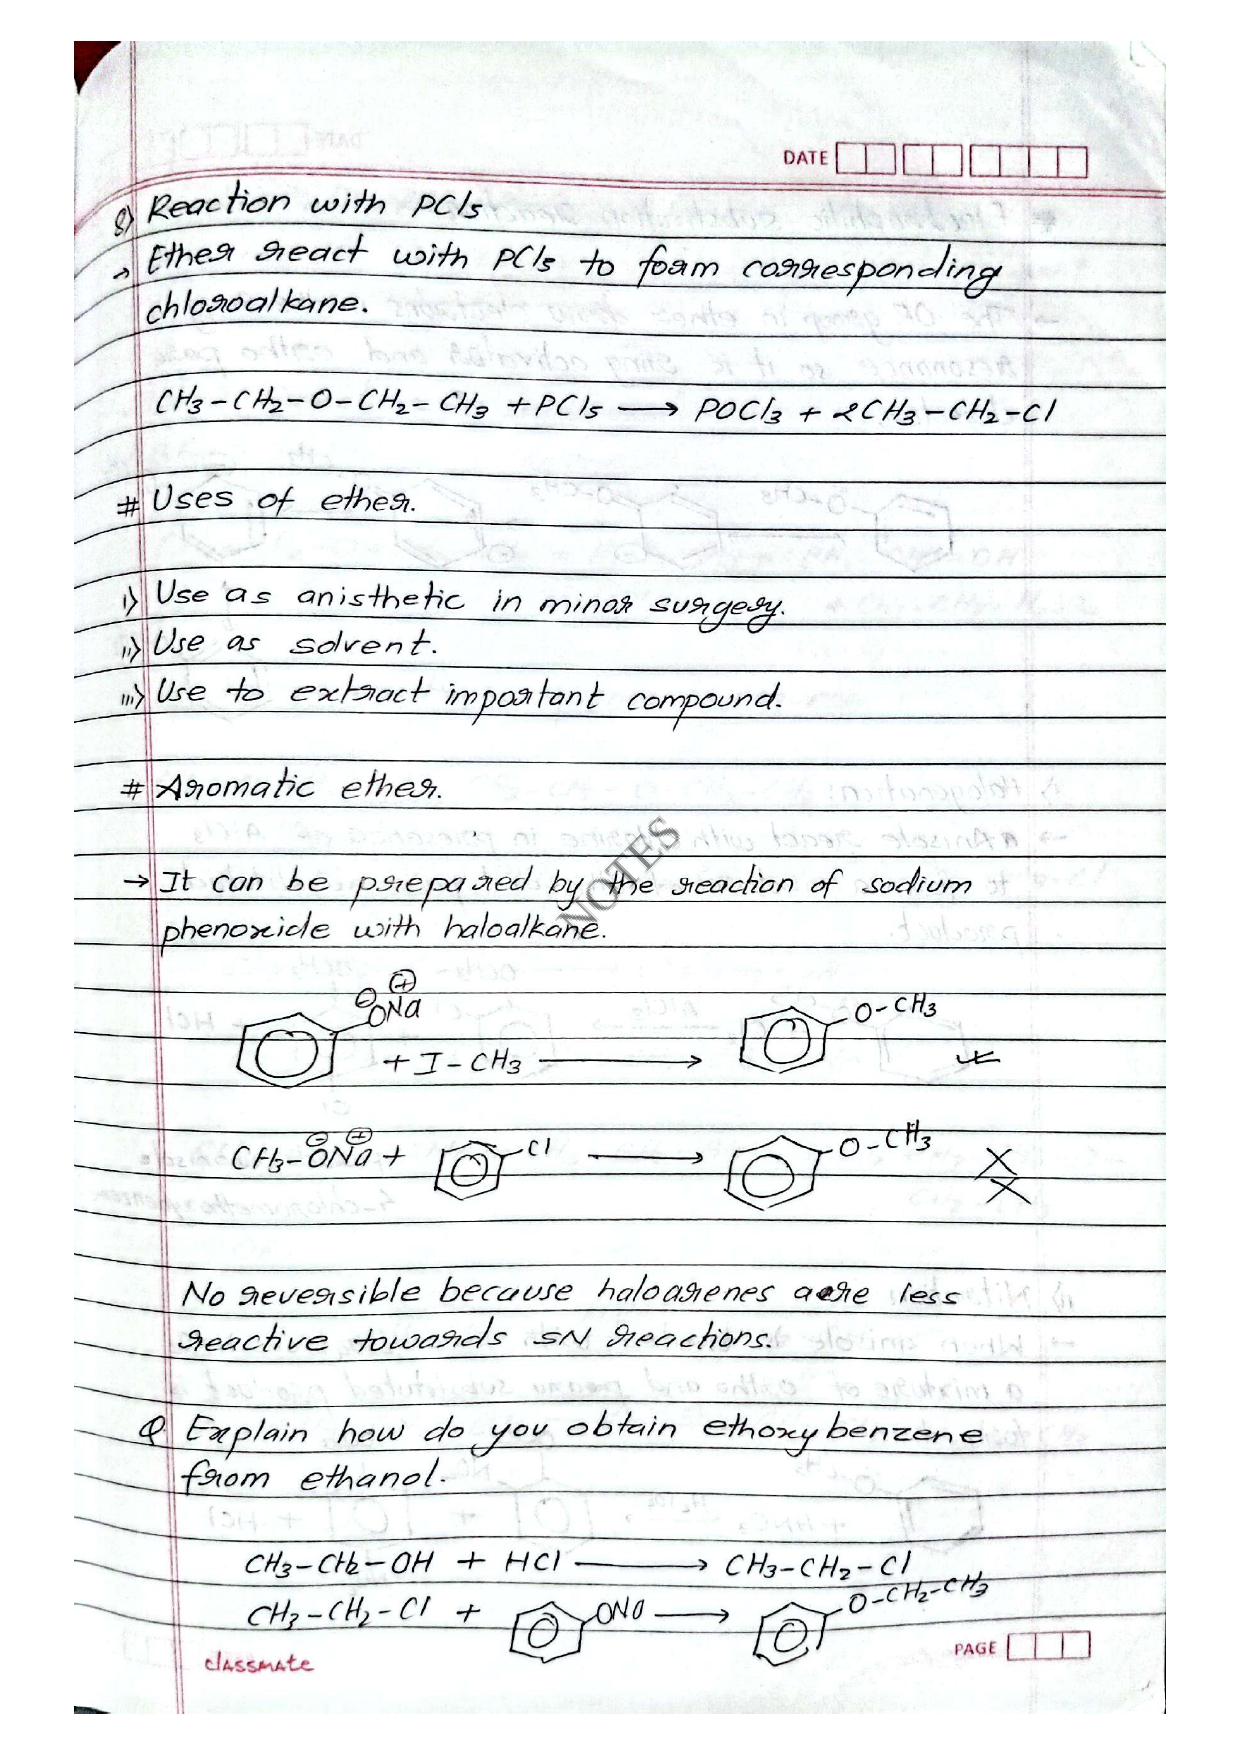 DATE
8) Reaction with PCl5
→ Ether react with PCl5 to form corresponding
chloroalkane.
CH3-CH2-O-CH2-CH3 + PCl5 ⟶ POCl3 + 2CH3-CH2-Cl
# Uses of ether.
i) Use as anisthetic in minor surgery.
ii) Use as solvent.
iii) Use to extract important compound.
# Aromatic ether.
→ It can be prepared by the reaction of sodium
phenoxide with haloalkane.
NOTES
⊖ ⊕
ONa
+ I-CH3 ⟶ O-CH3
⊖ ⊕
CH3-ONa + Cl ⟶ O-CH3
No reversible because haloarenes are less
reactive towards SN reactions.
Q Explain how do you obtain ethoxybenzene
from ethanol.
CH3-CH2-OH + HCl ⟶ CH3-CH2-Cl
CH3-CH2-Cl + ONa ⟶ O-CH2-CH3
classmate
PAGE